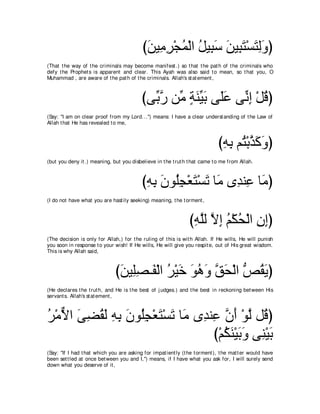 (وَلِتَسْتَبِينَ سَبِيلُ الْمُجْرِمِينَ)
(That the way of the criminals may become manifest.) so that the path of the criminals who
defy the Prophets is apparent and clear. This Ayah was also said to mean, so that you, O
Muhammad , are aware of the path of the criminals. Allah's statement,
(قُلْ إِنِّى عَلَى بَيِّنَةٍ مِّن رَّبِّى)
(Say: "I am on clear proof from my Lord...") means: I have a clear understanding of the Law of
Allah that He has revealed to me,
(وَكَذَّبْتُم بِهِ)
(but you deny it.) meaning, but you disbelieve in the truth that came to me from Allah.
(مَا عِندِى مَا تَسْتَعْجِلُونَ بِهِ)
(I do not have what you are hastily seeking) meaning, the torment,
(إِنِ الْحُكْمُ إِلاَّ للَّهِ)
(The decision is only for Allah,) for the ruling of this is with Allah. If He wills, He will punish
you soon in response to your wish! If He wills, He will give you respite, out of His great wisdom.
This is why Allah said,
(يَقُصُّ الْحَقَّ وَهُوَ خَيْرُ الْفَـصِلِينَ)
(He declares the truth, and He is the best of judges.) and the best in reckoning between His
servants. Allah's statement,
(قُل لَّوْ أَنَّ عِندِى مَا تَسْتَعْجِلُونَ بِهِ لَقُضِىَ الاٌّمْرُ
بَيْنِى وَبَيْنَكُمْ)
(Say: "If I had that which you are asking for impatiently (the torment), the matter would have
been settled at once between you and I,") means, if I have what you ask for, I will surely send
down what you deserve of it,